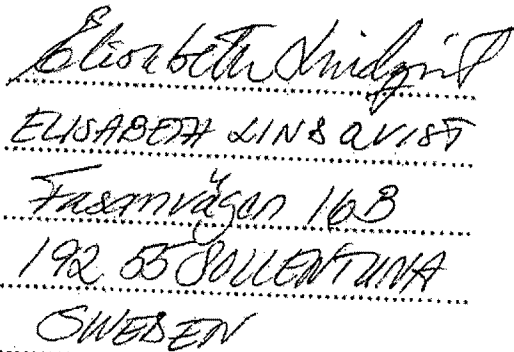 Elisabeth Lindqvist
ELISABETH LINDQVIST
Fasanvägen 16B
192 55 SOLLENTUNA
SWEDEN